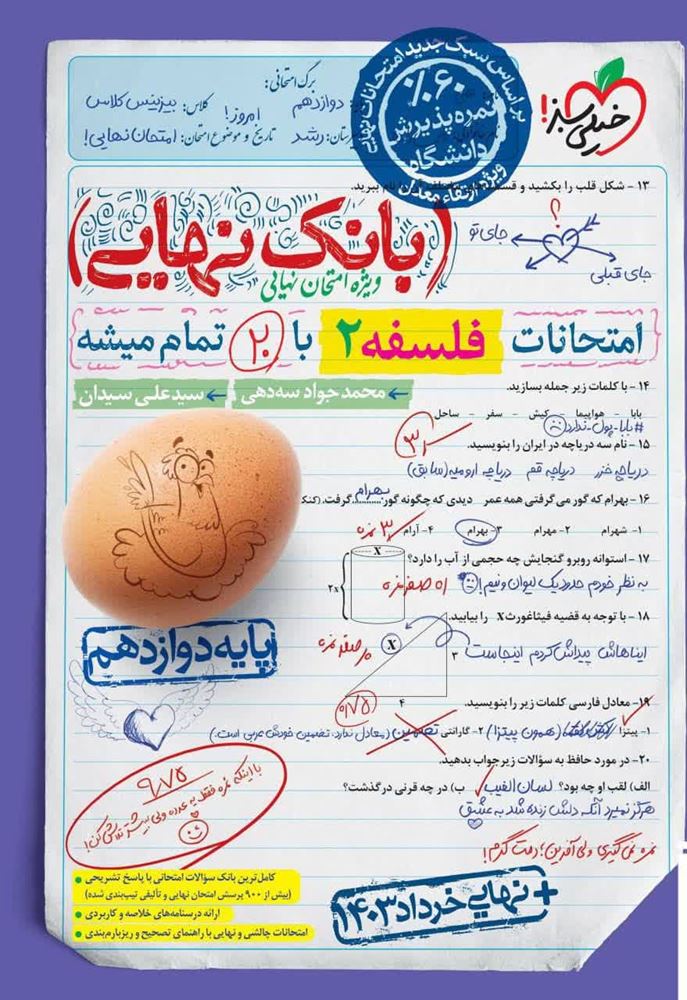 خیلی سبز!
براساس سبک جدید امتحانات نهایی
%۶۰
نمره پذیرش
دانشگاه
ویژه ارتقاء معدل
برگ امتحانی:
دوازدهم امروز! کلاس: بیزینس کلاس
رشد تاریخ و موضوع امتحان: امتحان نهایی!
۱۳ - شکل قلب را بکشید و نام ببرید.
؟
جای تو
جای قبلی
(بانک نهایی)
ویژه امتحان نهایی
{امتحانات فلسفه ۲ با ۲۰ تمام میشه}
محمدجواد سه‌دهی ← سیدعلی سیدان ←
۱۴ - با کلمات زیر جمله بسازید.
بابا - هواپیما - کیش - سفر - ساحل
#بابا-پول-ندارد
۱۵ - نام سه دریاچه در ایران را بنویسید.
دریاچه خزر دریاچه قم دریاچه ارومیه (سابق)
۱۶ - بهرام که گور می‌گرفتی همه عمر دیدی که چگونه گور بهرام گرفت.
۱- شهرام ۲- مهرام ۳- بهرام ۴- آرام
۳ نمره
۱۷ - استوانه روبرو گنجایش چه حجمی از آب را دارد؟
X
2x
به نظر خودم حدود یک لیوان و نیم!
۱۸ - با توجه به قضیه فیثاغورث X را بیابید.
ایناهاش پیداش کردم اینجاست
X
۳
۴
صفر نمره
۱۹- معادل فارسی کلمات زیر را بنویسید.
۰/۷۵
۱- پیتزا (همون پیتزا) ۲- گارانتی تضمین (معادل ندارد، تضمین خودش عربی است.)
۲۰- در مورد حافظ به سؤالات زیر جواب بدهید.
الف) لقب او چه بود؟ لسان الغیب ب) در چه قرنی درگذشت؟
هرگز نمیرد آنکه دلش زنده شد به عشق
نمره نمی‌گیری ولی آفرین؛ دمت گرم!
پایه دوازدهم
۹/۷۵
با اینکه نمره فقط یه عدده ولی بیشتر تلاش کن!
کامل‌ترین بانک سؤالات امتحانی با پاسخ تشریحی
(بیش از ۹۰۰ پرسش امتحان نهایی و تألیفی تیپ‌بندی شده)
ارائه درسنامه‌های خلاصه و کاربردی
امتحانات چالشی و نهایی با راهنمای تصحیح و ریزبارم‌بندی
+نهایی خرداد ۱۴۰۳